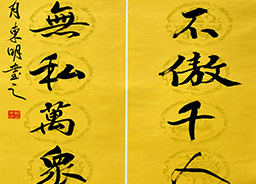 不傲千人
無私萬衆
月東明書之